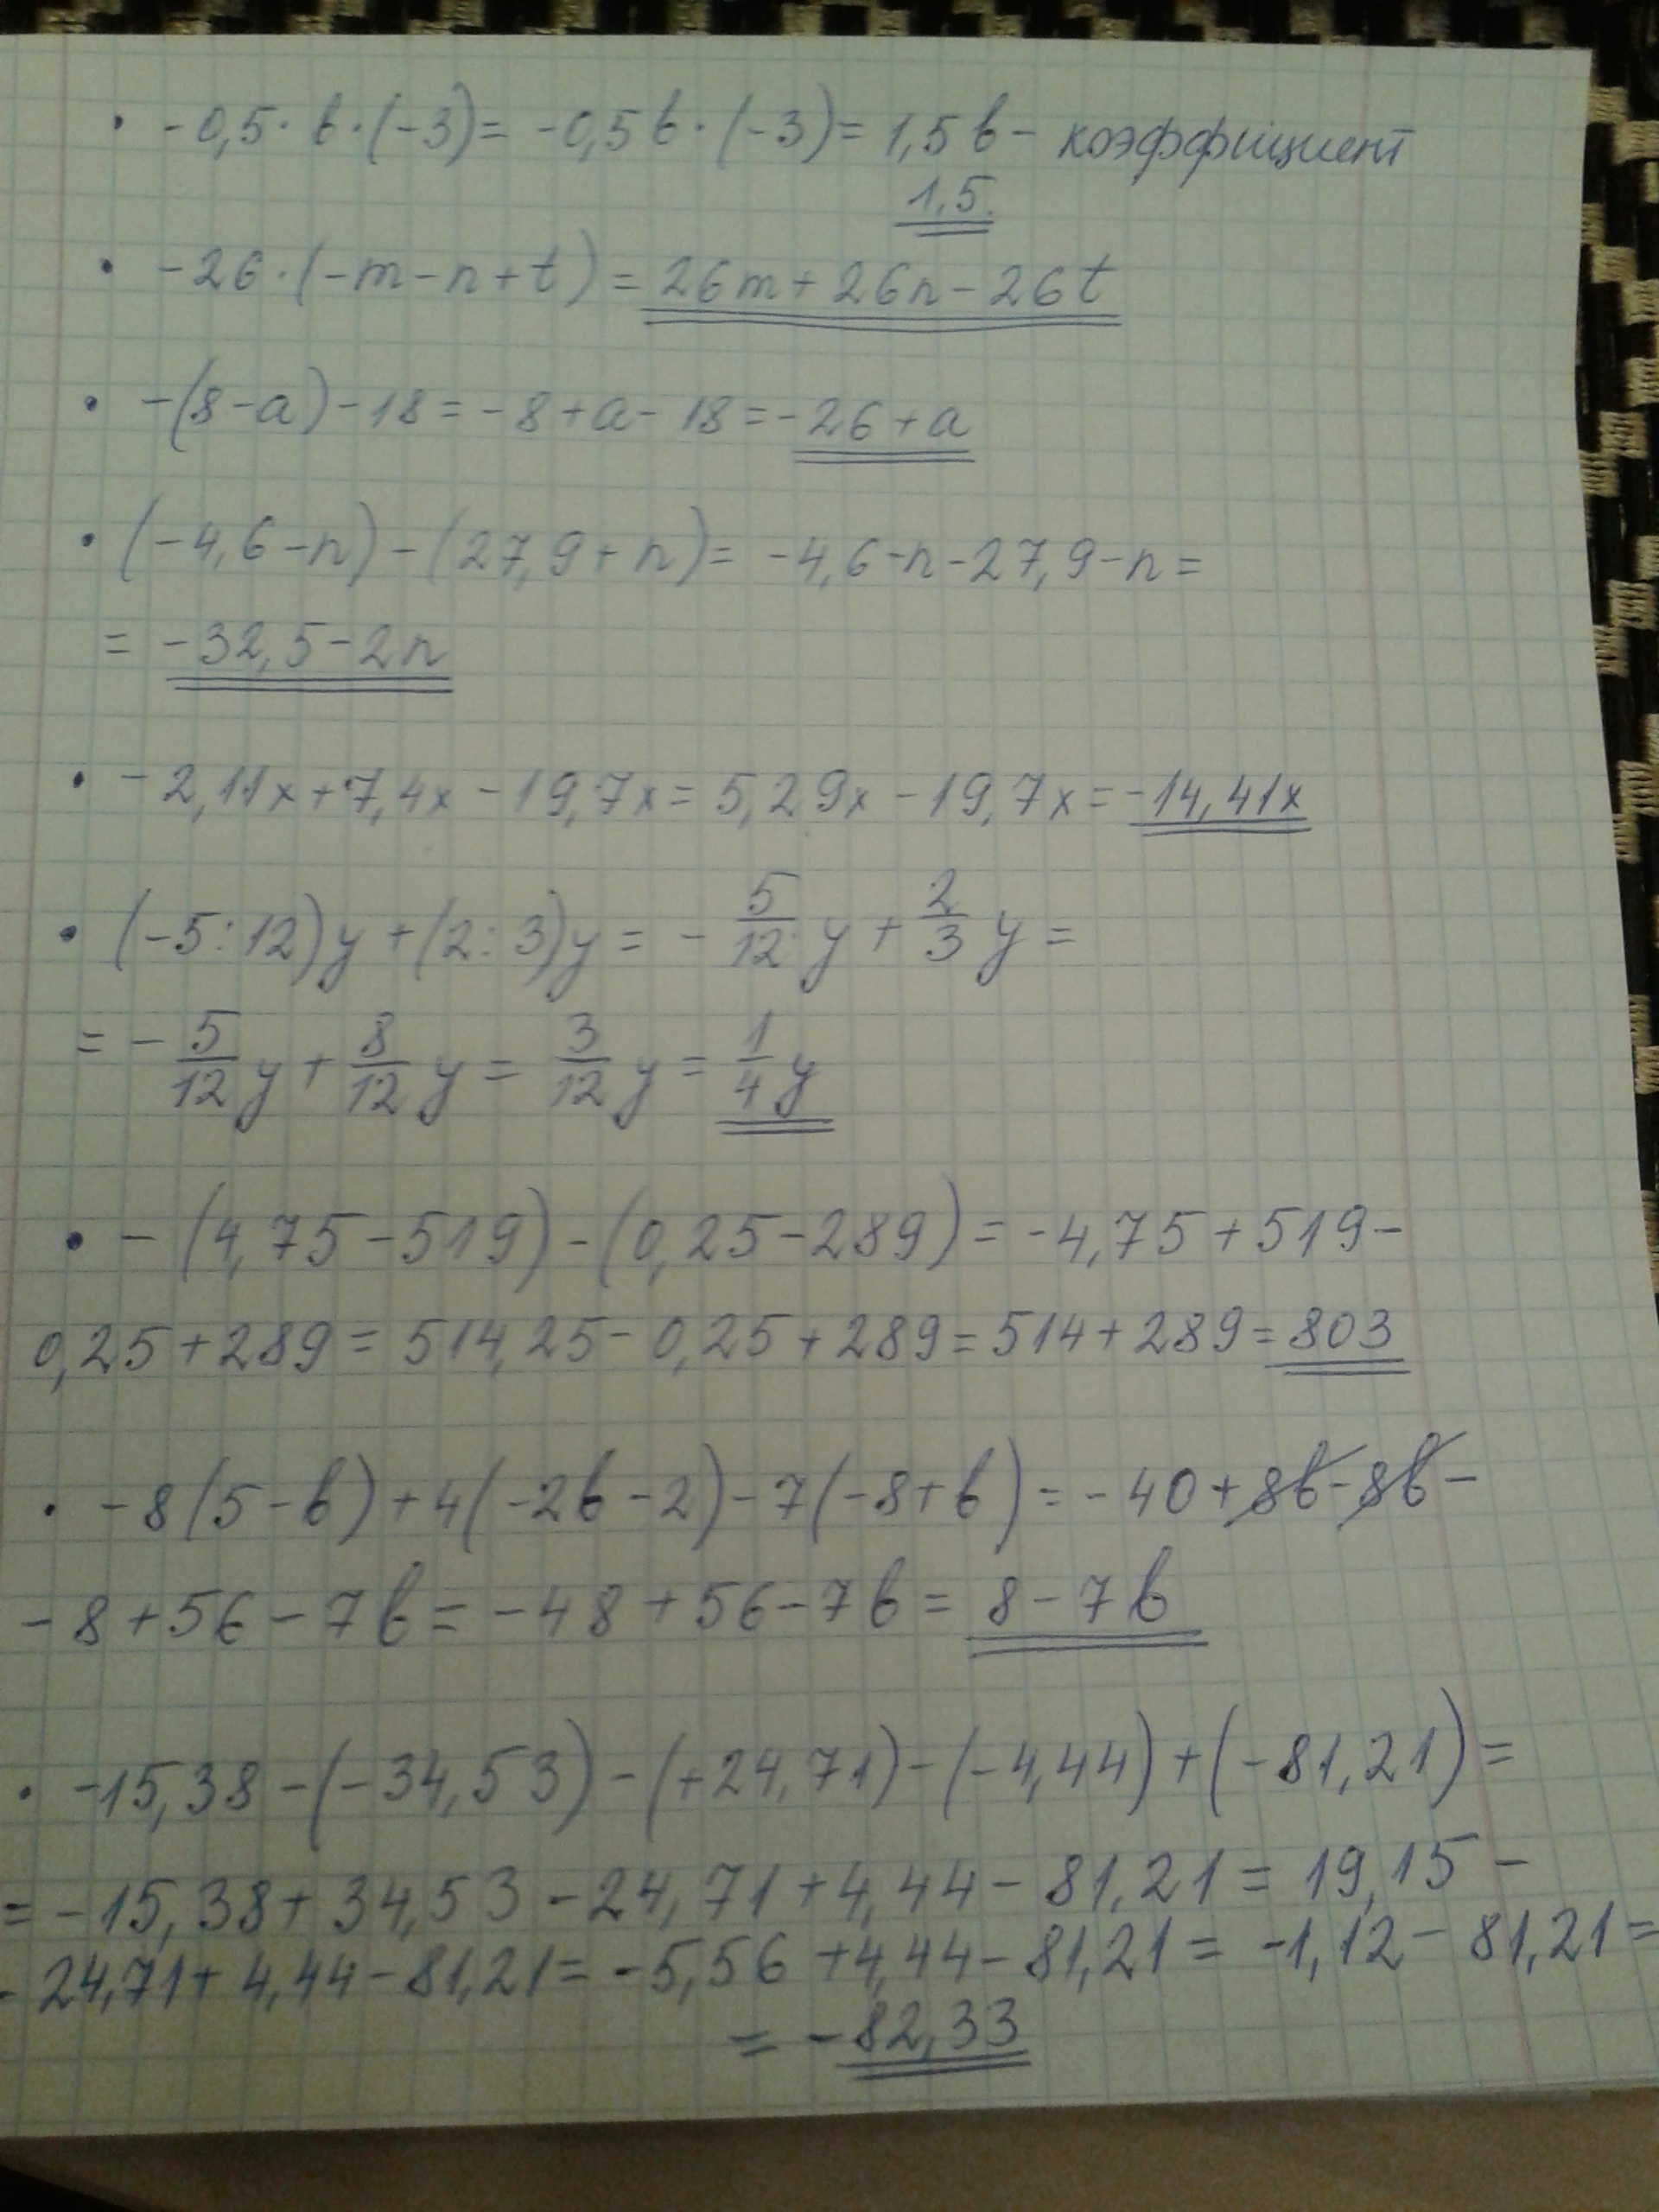 • -0,5· b·(-3)= -0,5b·(-3)= 1,5b- коэффициент
1,5.
• -26·(-m-n+t)=26m+26n-26t
• -(8-a)-18=-8+a-18=-26+a
• (-4,6-n)-(27,9+n)= -4,6-n-27,9-n=
= -32,5-2n
• -2,11x+7,4x-19,7x=5,29x-19,7x=-14,41x
• (-5:12)y+(2:3)y= -5/12y+2/3y=
= -5/12y+8/12y=3/12y=1/4y
• -(4,75-519)-(0,25-289)=-4,75+519-
0,25+289=514,25-0,25+289=514+289=803
• -8(5-b)+4(-2b-2)-7(-8+b)=-40+8b-8b-
-8+56-7b=-48+56-7b=8-7b
• -15,38-(-34,53)-(+24,71)-(-4,44)+(-81,21)=
=-15,38+34,53-24,71+4,44-81,21=19,15-
-24,71+4,44-81,21=-5,56+4,44-81,21=-1,12-81,21=
= -82,33